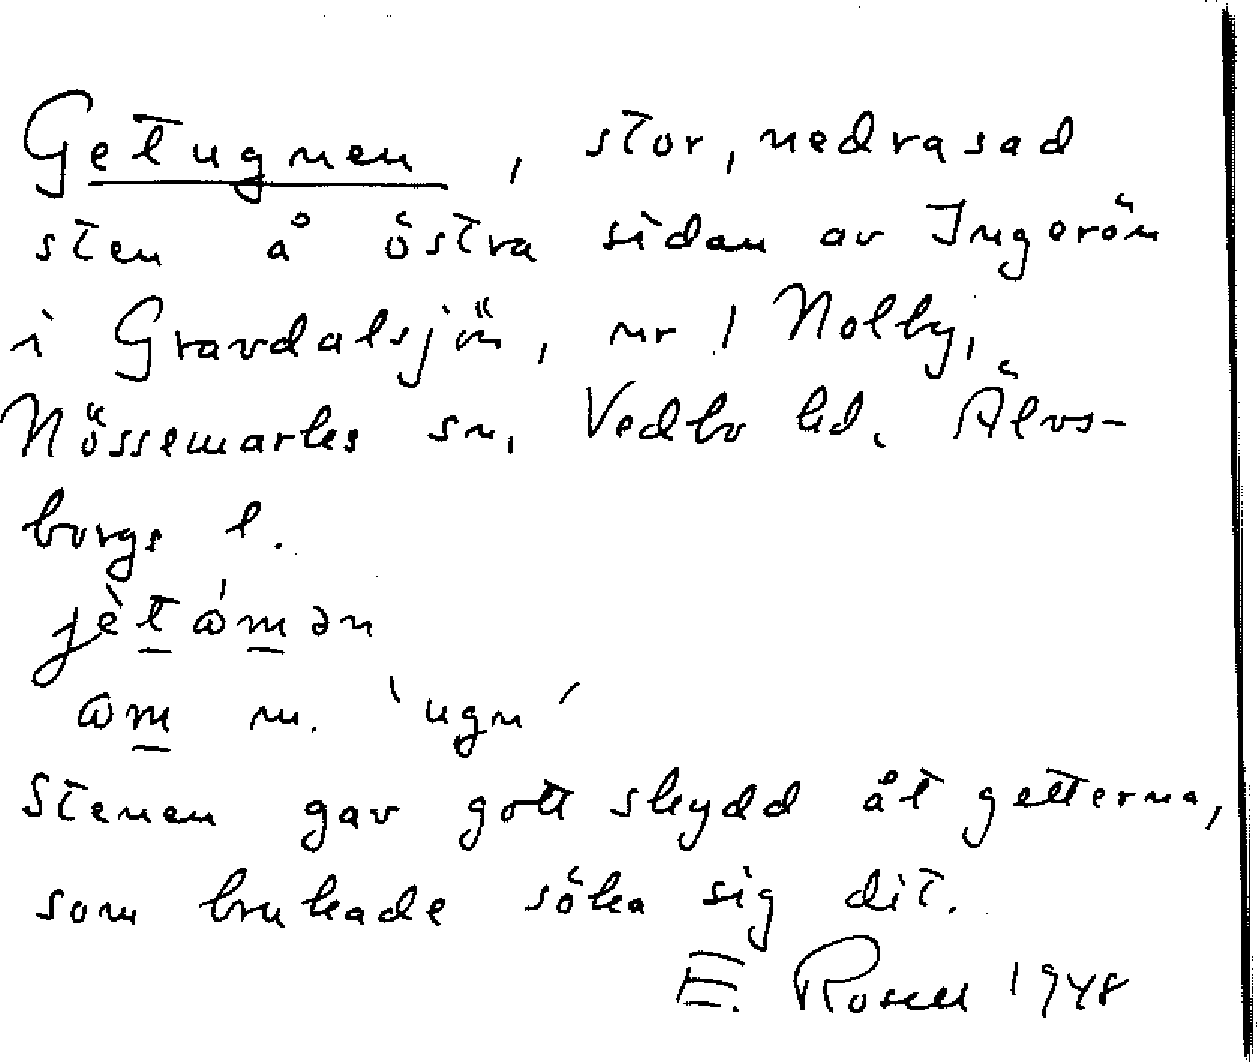 Getugnen, stor, nedrasad
sten å östra sidan av Ingerön
i Gravdalsjön, nr 1 Nolby,
Nössemarks sn, Vedbo hd. Älvs-
borgs l.
jètɷ́mən
ɷm m. 'ugn'
Stenen gav gott skydd åt getterna,
som brukade söka sig dit.
E. Rosell 1948